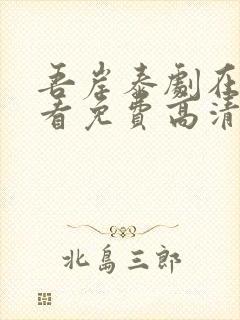 吾岸泰劇在
看免費高清
北島三郎